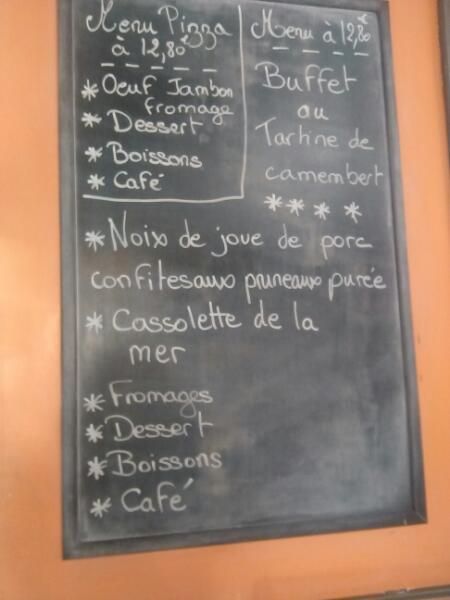 Menu Pizza
à 12,80€
* Oeuf Jambon
fromage
* Dessert
* Boissons
* Café
Menu à 12,80€
Buffet
ou
Tartine de
camembert
* * * *
* Noix de joue de porc
confites aux pruneaux purée
* Cassolette de la
mer
* Fromages
* Dessert
* Boissons
* Café